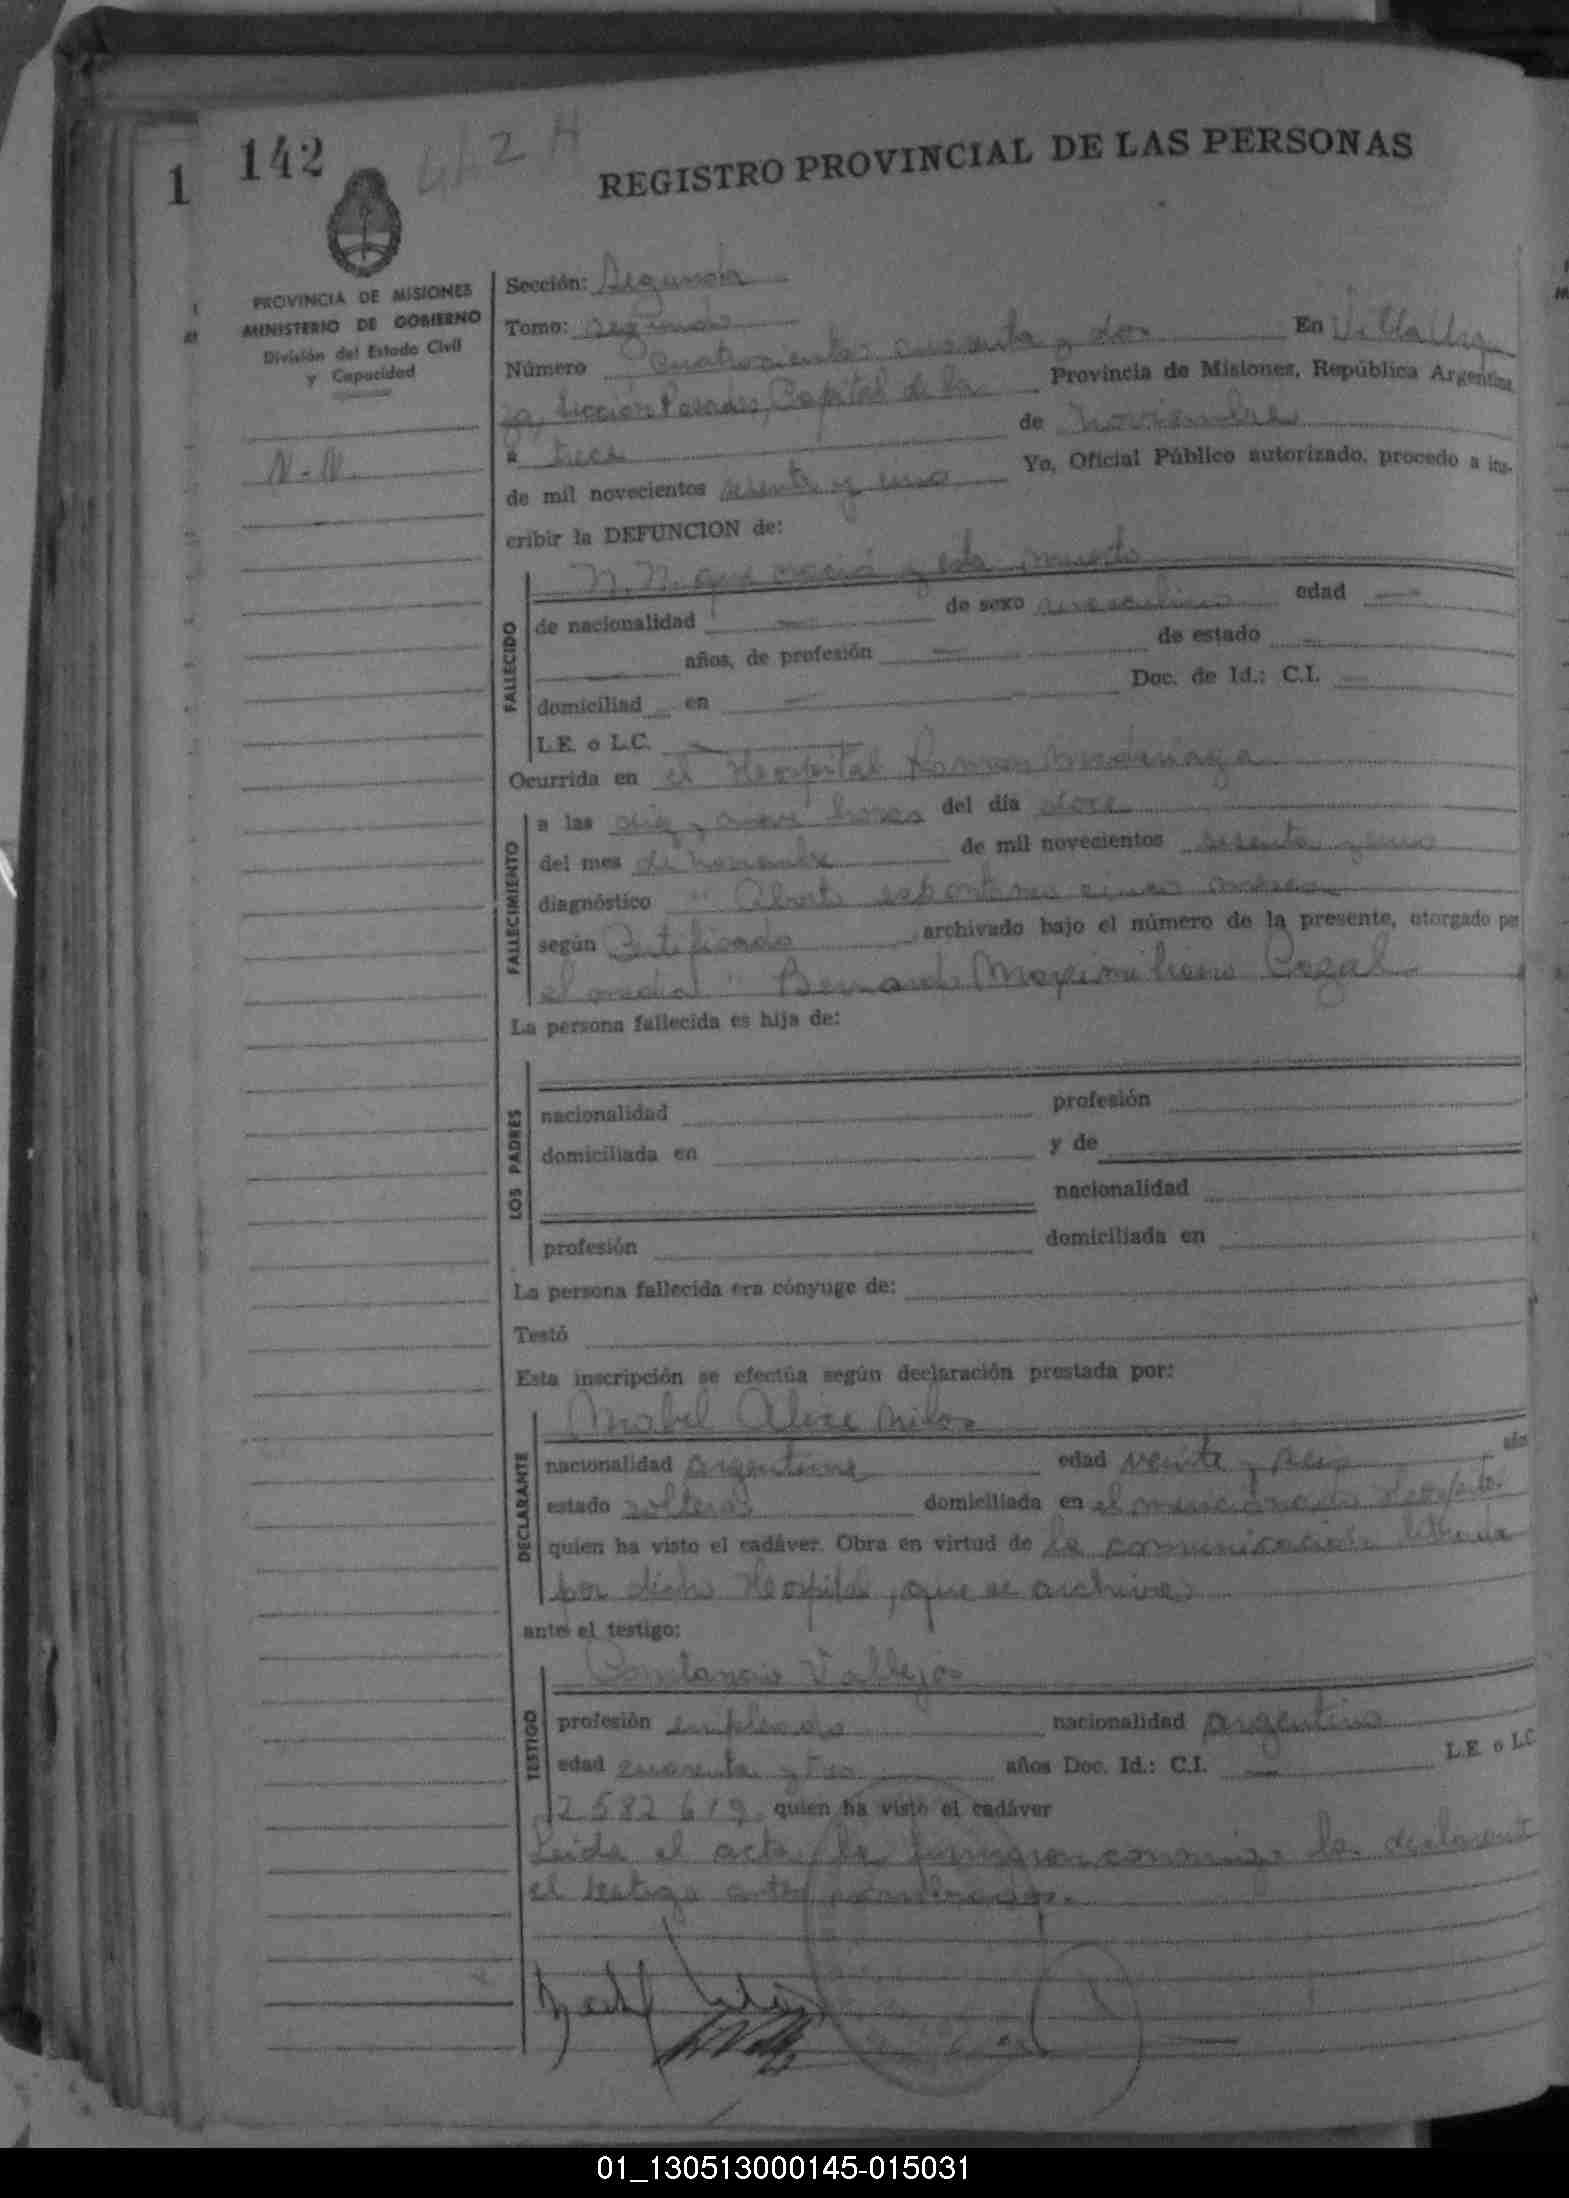 142
1
442 H
REGISTRO PROVINCIAL DE LAS PERSONAS
PROVINCIA DE MISIONES
MINISTERIO DE GOBIERNO
División del Estado Civil
y Capacidad
N. N.
Sección: Segunda
Tomo: segundo
Número cuatrocientos cuarenta y dos En Villa Urqui
za, Sección Posadas, Capital de la Provincia de Misiones, República Argentina,
a trece de noviembre
de mil novecientos sesenta y uno Yo, Oficial Público autorizado, procedo a ins-
cribir la DEFUNCION de:
N. N. que nació y esta muerto
FALLECIDO
de nacionalidad — de sexo masculino edad —
— años, de profesión — de estado —
domiciliad en — Doc. de Id.: C.I. —
L.E. o L.C. —
Ocurrida en el Hospital Ramon Madariaga
FALLECIMIENTO
a las diez y nueve horas del día doce
del mes de noviembre de mil novecientos sesenta y uno
diagnóstico " Aborto espontaneo cinco meses
según Certificado archivado bajo el número de la presente, otorgado por
el medico " Bernardo Maximiliano Cogal
La persona fallecida es hija de:
LOS PADRES
nacionalidad profesión
domiciliada en y de
nacionalidad
profesión domiciliada en
La persona fallecida era cónyuge de:
Testó
Esta inscripción se efectúa según declaración prestada por:
Mabel Alice
DECLARANTE
nacionalidad argentina edad veinte y seis años
estado soltera domiciliada en el mencionado Hospital
quien ha visto el cadáver. Obra en virtud de la comunicación librada
por dicho Hospital, que se archiva
ante el testigo:
Constancio Vallejos
TESTIGO
profesión empleado nacionalidad argentino
edad cuarenta y tres años Doc. Id.: C.I. — L.E. o L.C.
2582619 quien ha visto el cadáver
Leida el acta, la firmaron conmigo la declarante
el testigo antes
01_130513000145-015031